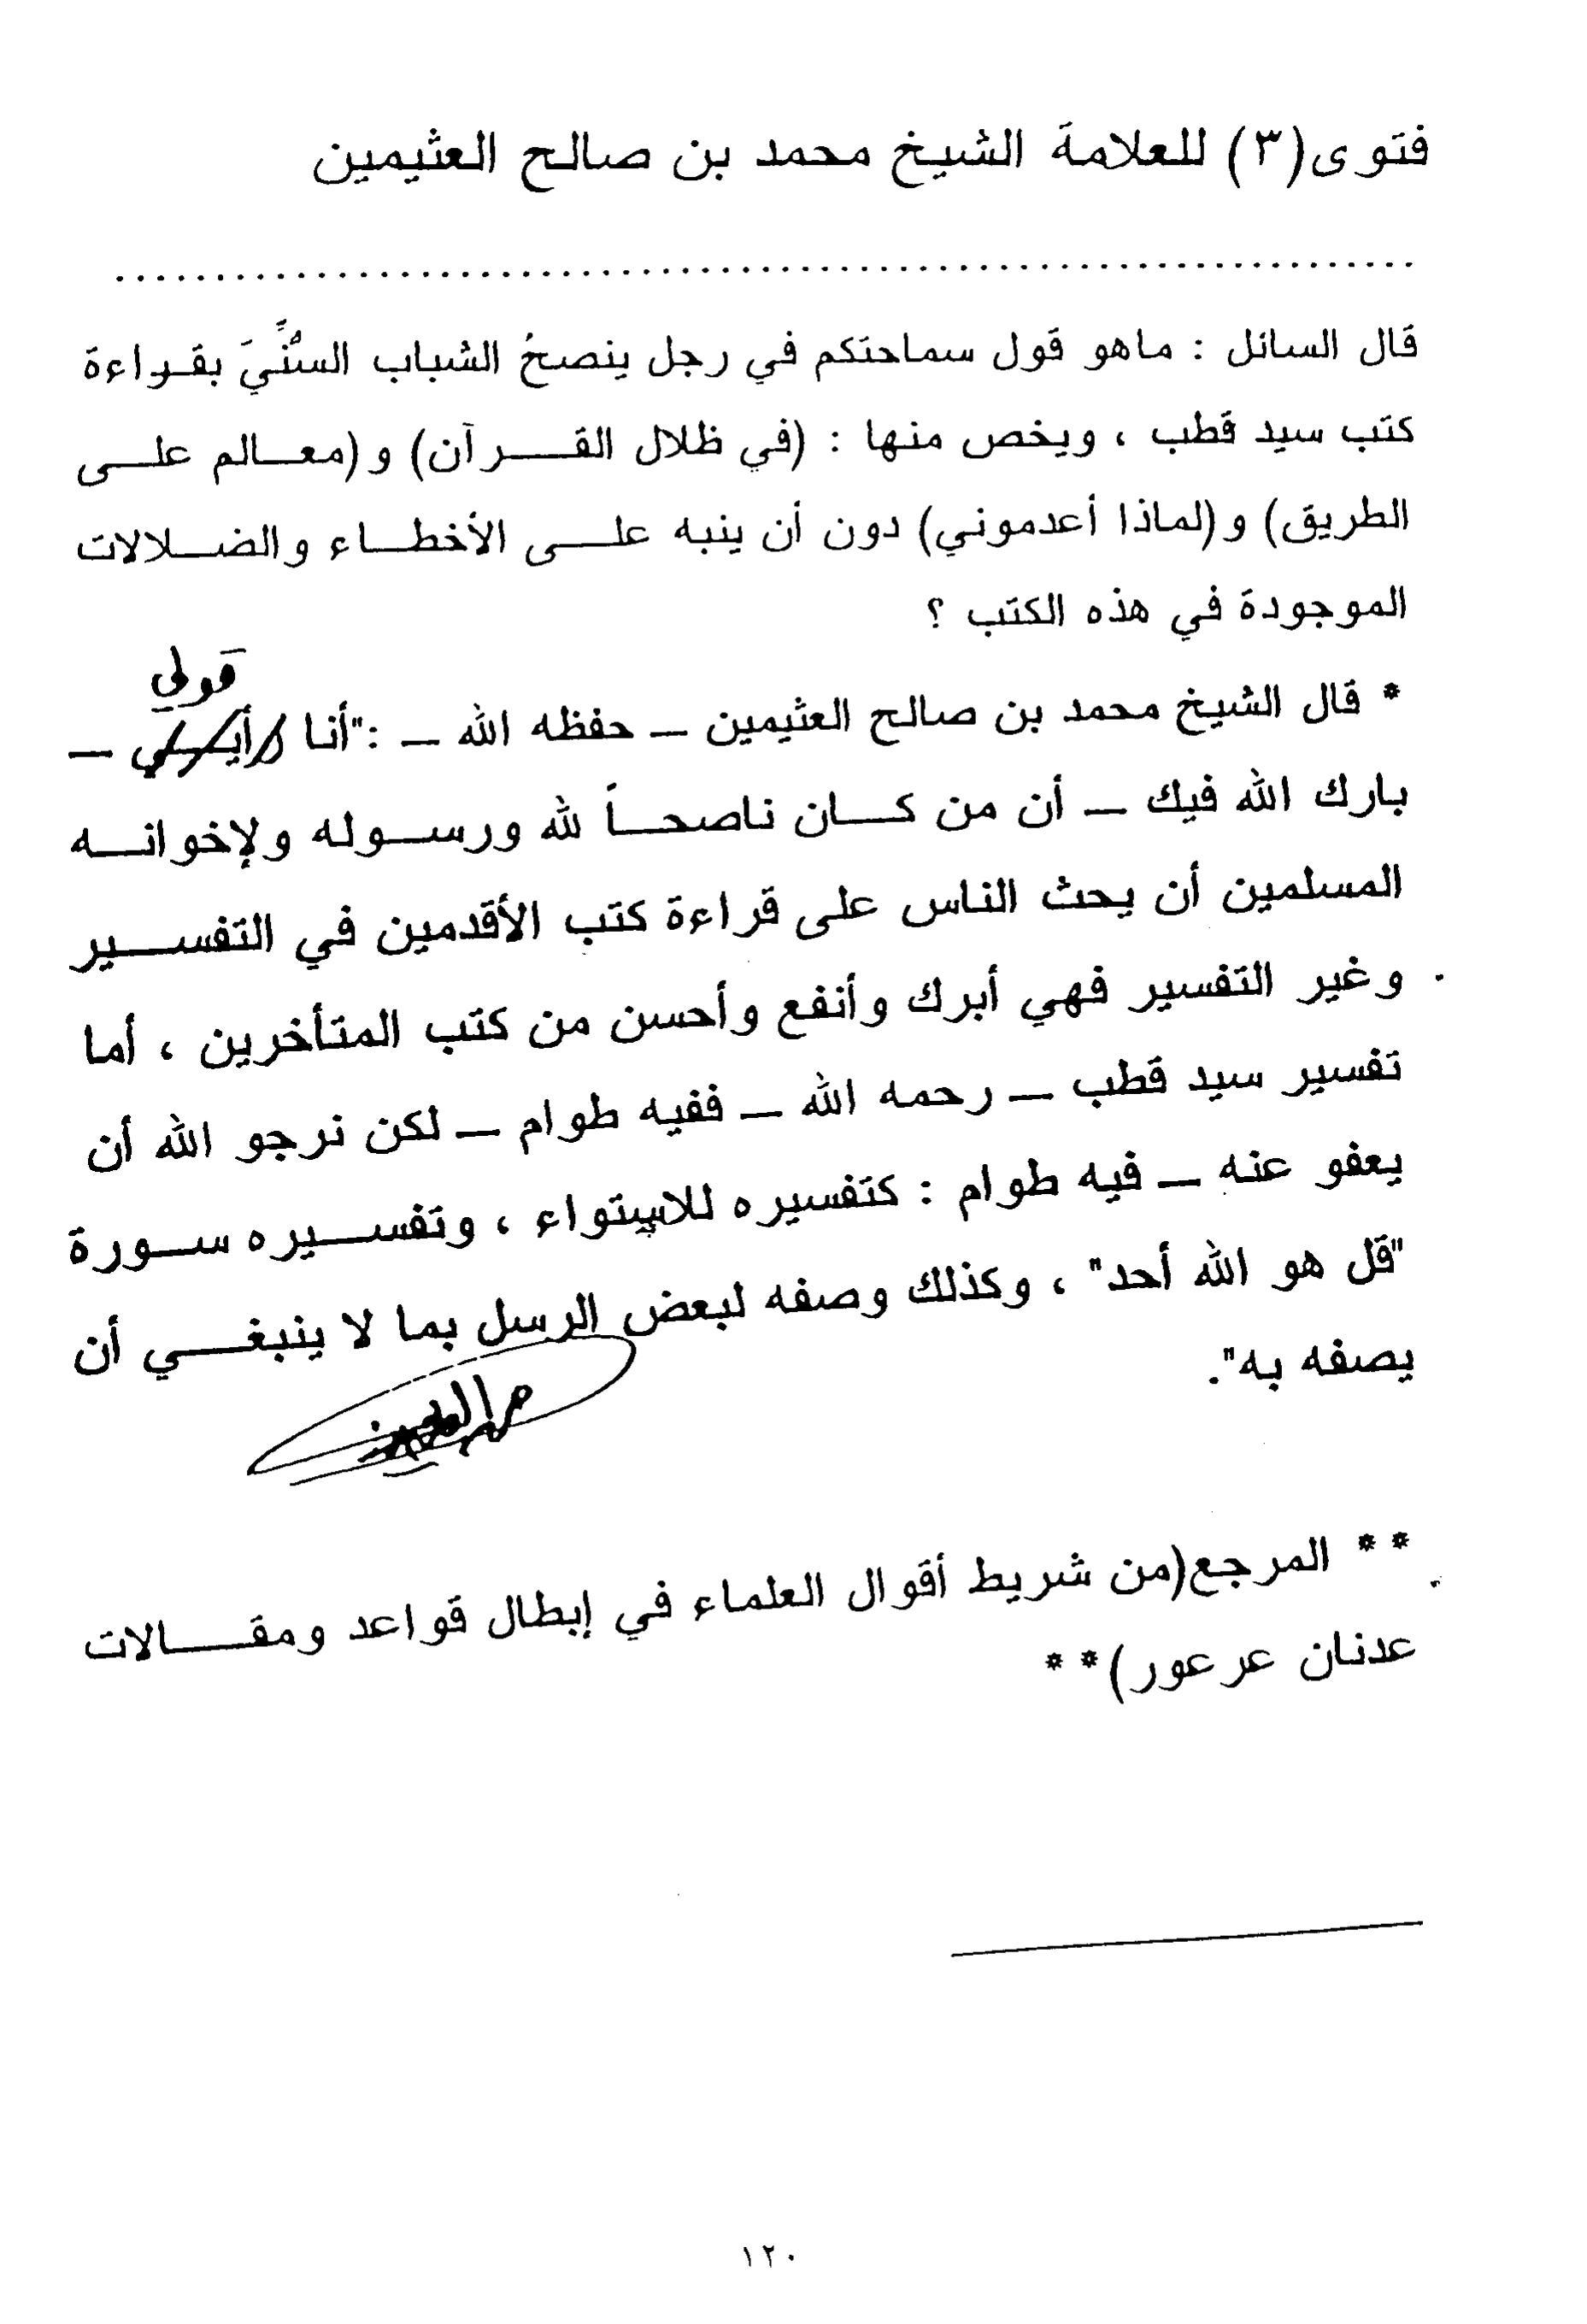 فتوى(٣) للعلامة الشيخ محمد بن صالح العثيمين
قال السائل : ماهو قول سماحتكم في رجل ينصحُ الشباب السُّنِّيَ بقراءة
كتب سيد قطب ، ويخص منها : (في ظلال القرآن) و(معالم على
الطريق) و(لماذا أعدموني) دون أن ينبه على الأخطاء والضلالات
الموجودة في هذه الكتب ؟
قولي
* قال الشيخ محمد بن صالح العثيمين – حفظه الله – :"أنا رأيي –
بارك الله فيك – أن من كان ناصحاً لله ورسوله ولإخوانه
المسلمين أن يحث الناس على قراءة كتب الأقدمين في التفسير
وغير التفسير فهي أبرك وأنفع وأحسن من كتب المتأخرين ، أما
تفسير سيد قطب – رحمه الله – ففيه طوام – لكن نرجو الله أن
يعفو عنه – فيه طوام : كتفسيره للاستواء ، وتفسيره سورة
"قل هو الله أحد" ، وكذلك وصفه لبعض الرسل بما لا ينبغي أن
يصفه به".
** المرجع(من شريط أقوال العلماء في إبطال قواعد ومقالات
عدنان عرعور)**
١٢٠